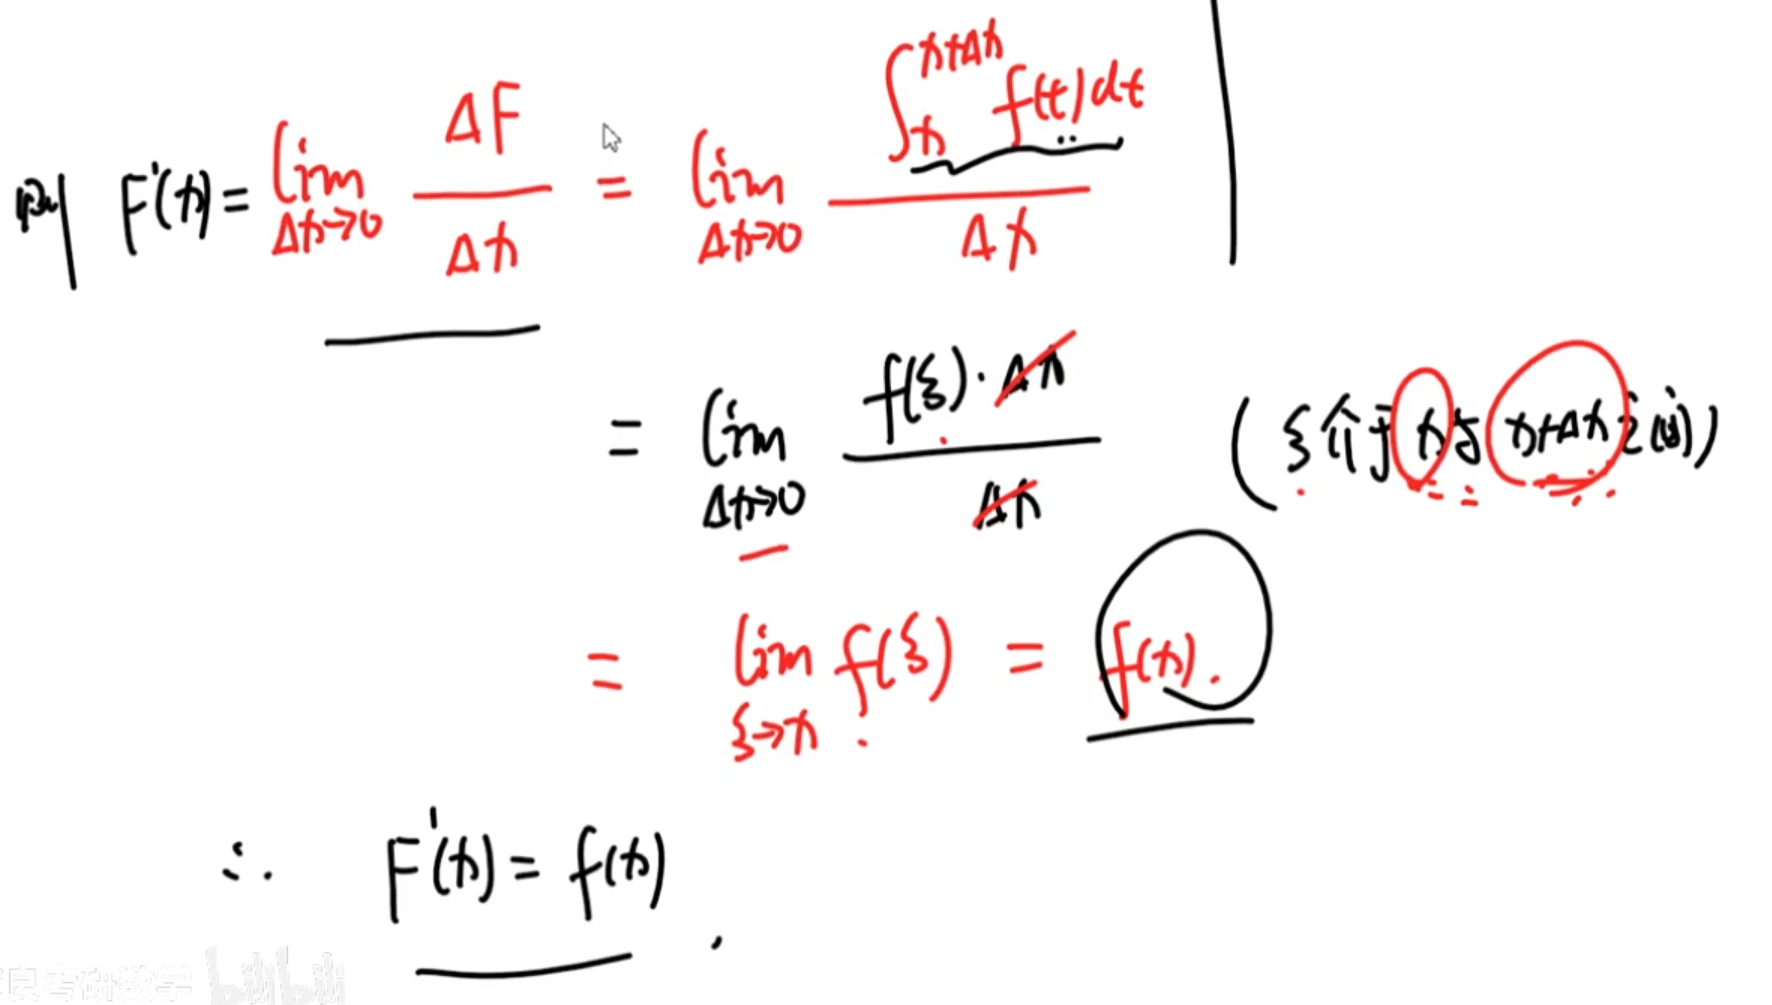 则 F'(x) = lim Δx→0 ΔF/Δx = lim Δx→0 ∫_x^{x+Δx} f(t)dt / Δx
= lim Δx→0 f(ξ)·Δx / Δx (ξ介于x与x+Δx之间)
= lim ξ→x f(ξ) = f(x).
∴ F'(x) = f(x).
良考研数学 bilibili